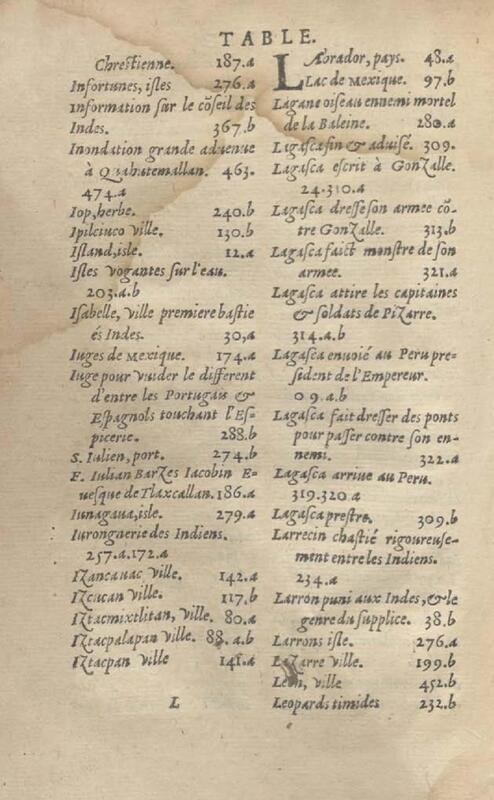 TABLE.
Chrestienne. 187.a
Infortunes, isles 276.a
Information sur le cõseil des
Indes. 367.b
Inondation grande aduenue
à Quahutemallan. 463.
474.a
Iop, herbe. 240.b
Ipilciuco ville. 130.b
Island, isle. 12.a
Isles vogantes sur l'eau.
203.a.b
Isabelle, ville premiere bastie
és Indes. 30,a
Iuges de Mexique. 174.a
Iuge pour vuider le different
d'entre les Portugais &
Espagnols touchant l'Es-
picerie. 288.b
S. Iulien, port. 274.b
F. Iulian Barzes Iacobin E-
uesque de Tlaxcallan. 186.a
Iunagaua, isle. 279.a
Iurongnerie des Indiens.
257.a.172.a
Izancauac ville. 142.a
Izcucan ville. 117.b
Iztacmixtlitan, ville. 80.a
Iztacpalapan ville. 88.a.b
Iztacpan ville 141.a
L
LAbrador, pays. 48.a
Lac de Mexique. 97.b
Lagane oiseau ennemi mortel
de la Baleine. 280.a
Lagasca fin & aduisé. 309.
Lagasca escrit à Gonzalle.
24.310.a
Lagasca dresse son armee cõ-
tre Gonzalle. 313.b
Lagasca faict monstre de son
armee. 321.a
Lagasca attire les capitaines
& soldats de Pizarre.
314.a.b
Lagasca enuoié au Peru pre-
sident de l'Empereur.
09.a.b
Lagasca fait dresser des ponts
pour passer contre son en-
nemi. 322.a
Lagasca arriue au Peru.
319.320.a
Lagasca prestre. 309.b
Larrecin chastié rigoureuse-
ment entre les Indiens.
234.a
Larron puni aux Indes, & le
genre du supplice. 38.b
Larrons isle. 276.a
Lazarre ville. 199.b
Leon, ville 452.b
Leopards timides 232.b